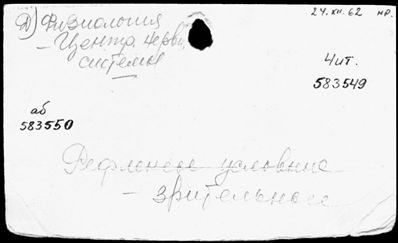 24.XII.62 нр.
Д) Физиология
– Центр. нервн.
системы
Чит.
583549
аб
583550
Рефлексы условные
– зрительные